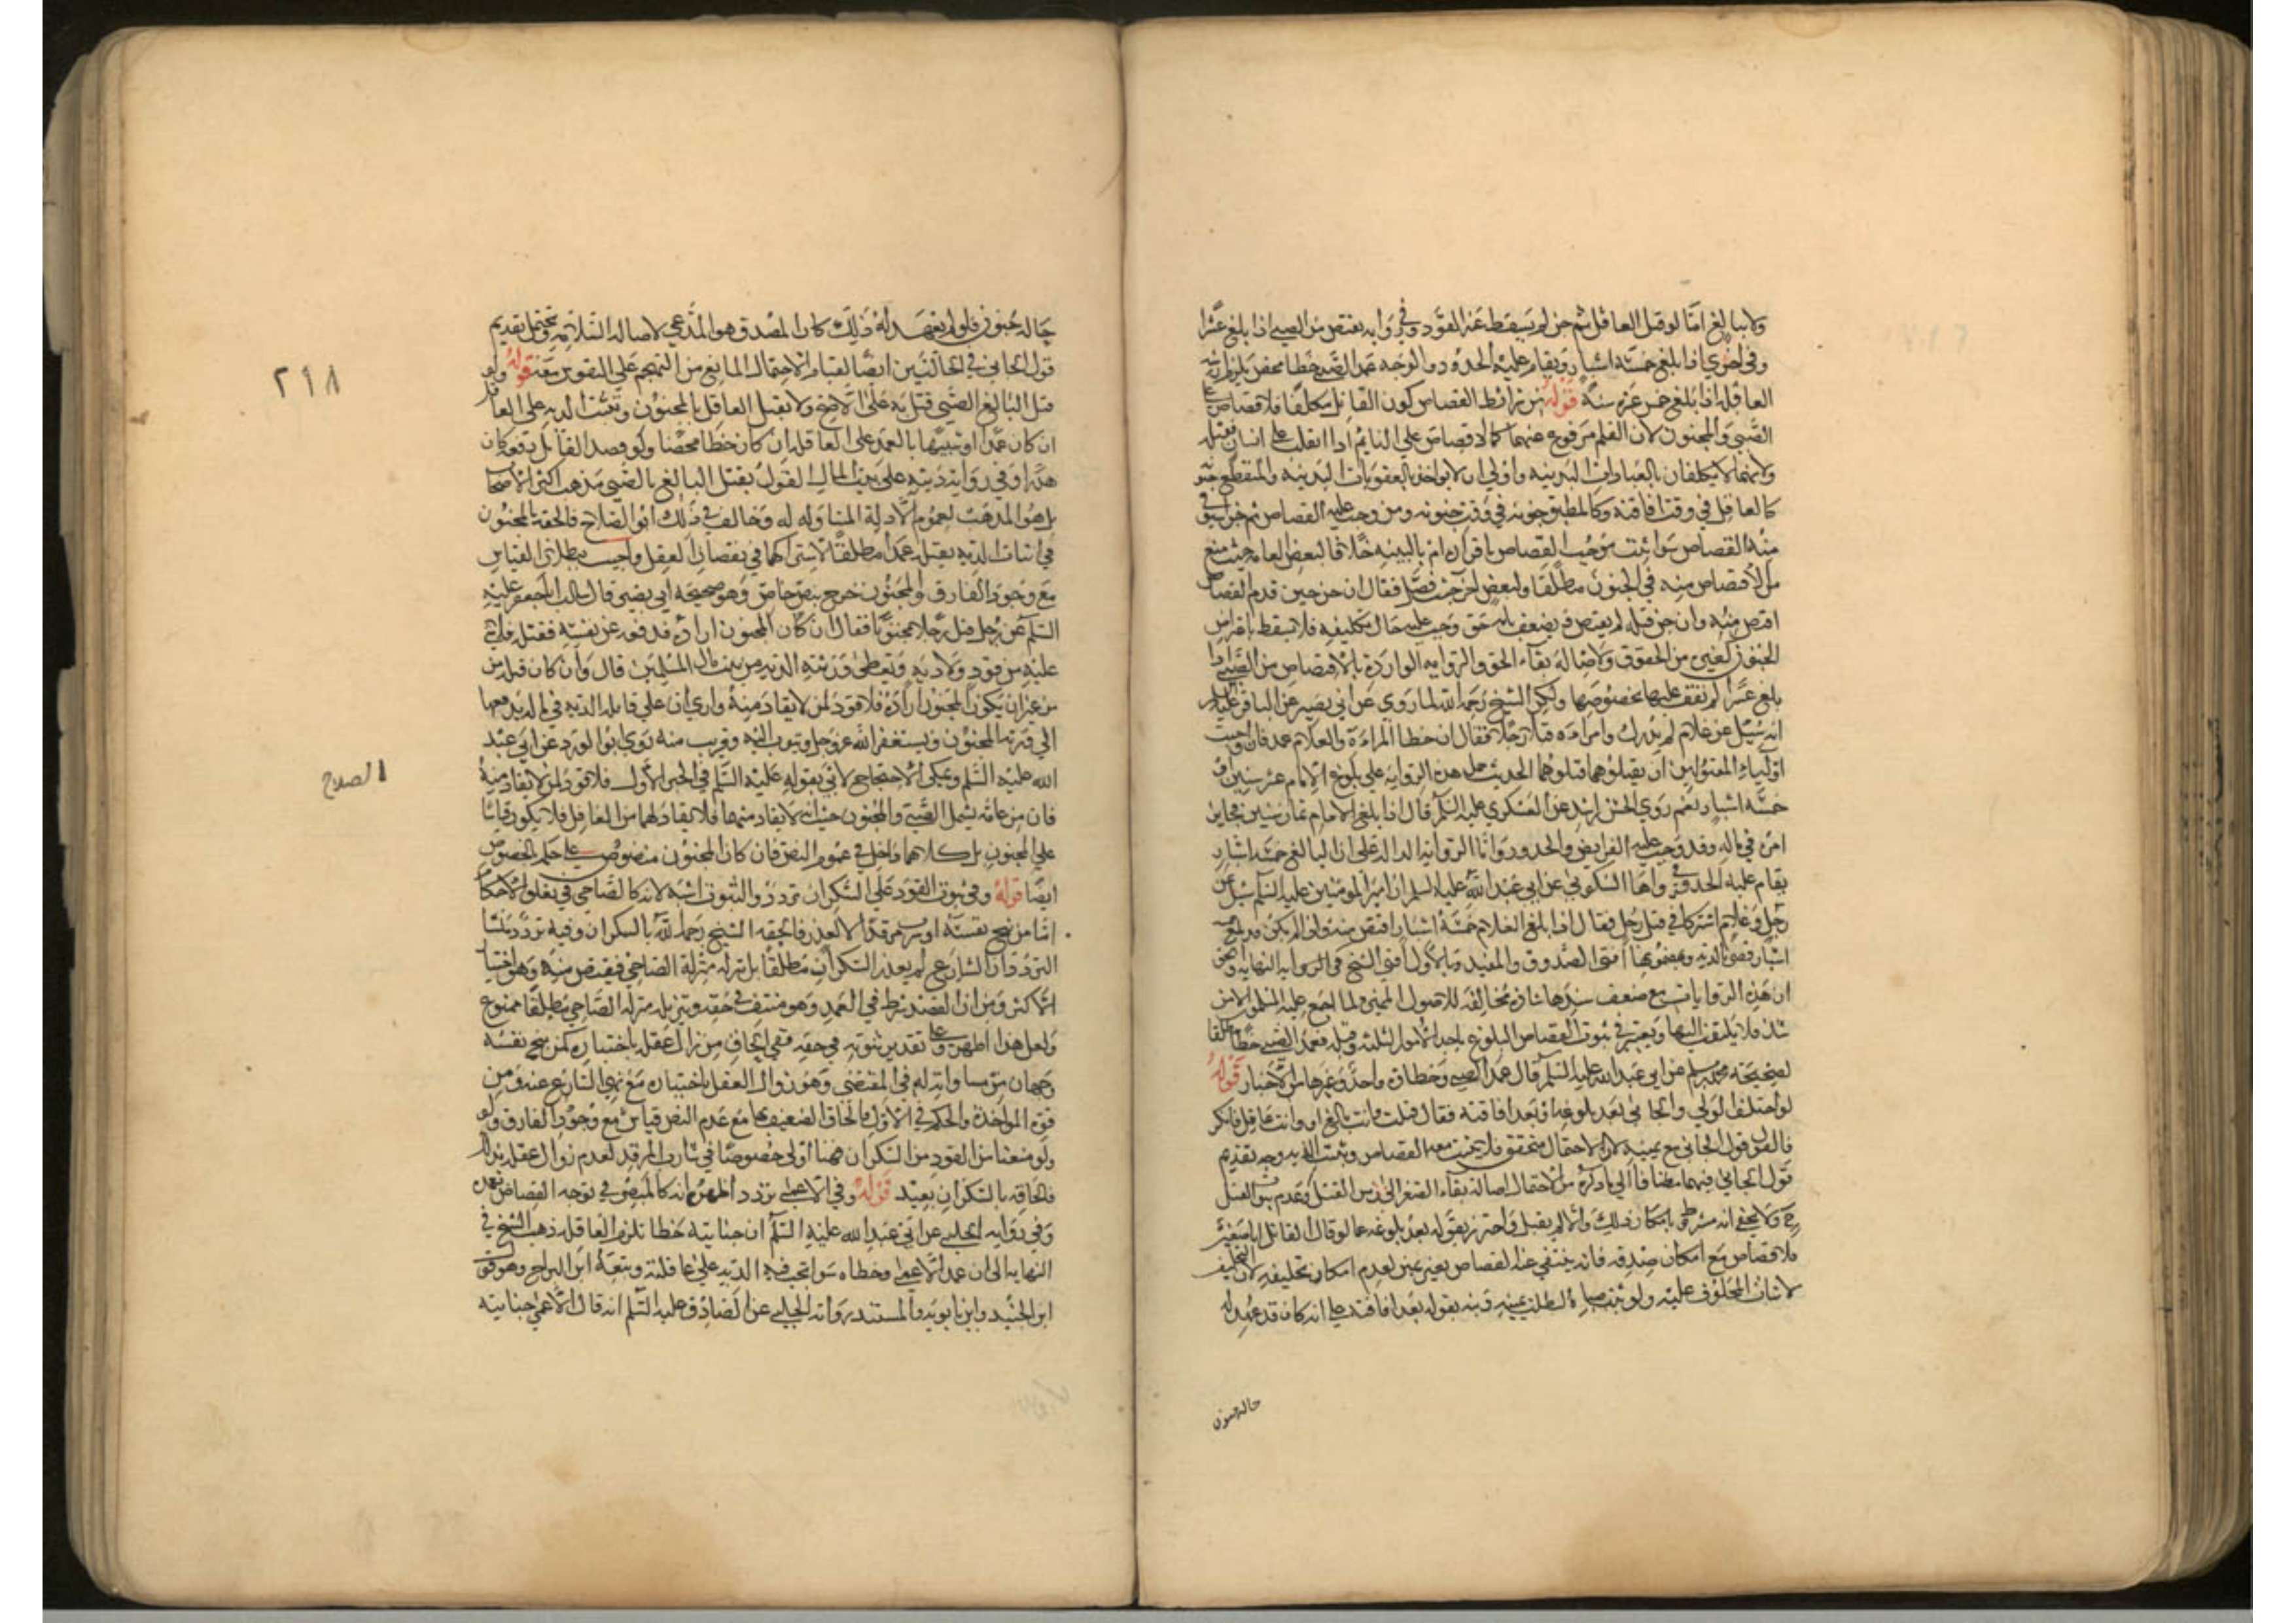 ولا ببالغ اما لو قتل العاقل ثم جن لم يسقط عنه القود وفي رواية يقتص من الصبي اذا بلغ عشرا
وفي اخرى اذا بلغ خمسة اشبار ويقام عليه الحدود والوجه عمد الصبي خطا محض يلزم ارشه
العاقلة اذا بلغ خمس عشرة سنة قوله من شرائط القصاص كون القاتل مكلفا فلا قصاص على
الصبي والمجنون لان القلم مرفوع عنهما كما لا قصاص على النايم اذا انقلب على انسان فقتله
ولانهما لا يكلفان بالعبادات البدنية واولى ان لا يواخذ بالعقوبات البدنية والمنقطع جنونه
كالعاقل في وقت افاقته وكالمطبق جنونه في وقت جنونه ومن وجب عليه القصاص ثم جن استوفي
منه القصاص سوا ثبت موجب القصاص باقراره ام بالبينة خلافا لبعض العامة حيث منع
من الاقتصاص منه في الجنون مطلقا ولبعض اخر حيث فصل فقال ان جن حين قدم للقصاص
اقتص منه وان جن قبله لم يقتص ويضعف بانه حق وجب عليه حال تكليفه فلا يسقط باعتراض
الجنون كغيره من الحقوق ولاصالة بقاء الحق والرواية الواردة بالاقتصاص من الصبي اذا
بلغ عشرا لم نقف عليها بخصوصها ولكن الشيخ رحمه الله لما روى عن ابي بصير عن الباقر عليه السلام
انه سئل عن غلام لم يدرك وامراءة قتلا رجلا فقال ان خطا المراءة والغلام عمد فان احبت
اولياء المقتول ان يقتلوهما قتلوهما الحديث حمل هذه الرواية على بلوغ الامام عشر سنين او
خمسة اشبار نعم روى الحسن بن راشد عن العسكري عليه السلم قال اذا بلغ الغلام ثمان سنين فجايز
امره في ماله وقد وجب عليه الفرايض والحدود واما الرواية الدالة على ان البالغ خمسة اشبار
يقام عليه الحد فرواها السكوني عن ابي عبد الله عليه السلم ان امير المومنين عليه السلم سئل عن
رجل وغلام اشتركا في قتل رجل فقال اذا بلغ الغلام خمسة اشبار اقتص منه وان لم يكن قد بلغ خمسة
اشبار قضى بالدية وبمضمونها افتى الصدوق والمفيد وبالاول افتى الشيخ في النهاية والحق
ان هذه الروايات مع ضعف سندها شاذة مخالفة للاصول الممهدة ولما اجمع عليه المسلمون الا من
شذ فلا يلتفت اليها ويعتبر في ثبوت القصاص البلوغ باحد الامور الثلثة وقبله فعمد الصبي خطا مطلقا
لصحيحة محمد بن مسلم عن ابي عبد الله عليه السلم قال عمد الصبي وخطاه واحد وغيرها من الاخبار قوله
لو اختلف الولي والجاني بعد بلوغه او بعد افاقته فقال قتلت وانت بالغ او وانت عاقل فانكر
فالقول قول الجاني مع يمينه لان الاحتمال متحقق فلا يثبت معه القصاص وتثبت الدية وجه تقديم
قول الجاني فيهما مضافا الى ما ذكره من الاحتمال اصالة بقاء الصغر الى زمن القتل وعدم ثبوت القتل
ح ولا يخفى انه مشروط بامكان ذلك والا لم يقبل واحترز بقوله بعد بلوغه عما لو قال القاتل انا صغير
فلا قصاص مع امكان صدقه فانه ينتفي عنه القصاص بغير يمين لعدم امكان تحليفه لان التحليف
لاثبات المحلوف عليه ولو ثبت صباه لبطلت يمينه ونبه بقوله بعد افاقته على انه كان قد عهد له
حالة جنون
٢١٨
حالة جنون فلو لم يعهد له ذلك كان المصدق هو المدعي لاصالة السلامة ويحتمل تقديم
قول الجاني في الحالتين ايضا لقيام الاحتمال المانع من التهجم على النفوس معه قوله ولو
قتل البالغ الصبي قتل به على الاصح ولا يقتل العاقل بالمجنون وتثبت الدية على القاتل
ان كان عمدا او شبيها بالعمد وعلى العاقلة ان كان خطا محضا ولو قصد القاتل دفعه كان
هدرا وفي رواية ديته على بيت المال القول بقتل البالغ بالصبي مذهب اكثر الاصحاب
بل هو المذهب لعموم الادلة المتناولة له وخالف في ذلك ابو الصلاح فالحقه بالمجنون
في اثبات الدية بقتله عمدا مطلقا لاشتراكهما في نقصان العقل واجيب ببطلان القياس
مع وجود الفارق والمجنون خرج بنص خاص وهو صحيحة ابي بصير قال سالت ابا جعفر عليه
السلم عن رجل قتل رجلا مجنونا فقال ان كان المجنون اراده فدفعه عن نفسه فقتله فلا شئ
عليه من قود ولا دية ويعطى ورثته الدية من بيت مال المسلمين قال وان كان قتله من
من غير ان يكون المجنون اراده فلا قود لمن لا يقاد منه وارى ان على قاتله الدية في ماله يدفعها
الى ورثة المجنون ويستغفر الله عز وجل ويتوب اليه وقريب منه روى ابو الورد عن ابي عبد
الله عليه السلم ويمكن الاحتجاج لابي بقوله عليه السلم في الخبر الاول فلا قود لمن لا يقاد منه
الصلاح
فان من عامة يشمل الصبي والمجنون حيث انه لا يقاد منهما فلا يقاد لهما من العاقل فلا يكون قياسا
على المجنون بل كلاهما داخل في عموم النص فان كان المجنون منصوص على حكم الخصوص
ايضا قوله وفي ثبوت القود على السكران تردد والثبوت اشبه لانه كالصاحي في تعلق الاحكام
اما من بنج نفسه او شرب مرقدا لا لعذر فالحقه الشيخ رحمه الله بالسكران وفيه تردد منشا
التردد ان الشارع لم يعذر السكران مطلقا بل نزله منزلة الصاحي فيقتص منه وهو اختيار
الاكثر ومن ان القصد شرط في العمد وهو منتف في حقه وتنزيله منزلة الصاحي مطلقا ممنوع
ولعل هذا اظهر وعلى تقدير ثبوته في حقه ففي الحاق من زال عقله باختياره كمن بنج نفسه
وجهان من مساواته له في المقتضي وهو زوال العقل باختياره مع نهي الشارع عنه ومن
قوة المواخذة والحكم في الاول فالحاق الضعيف بها مع عدم النص قياس مع وجود الفارق ولو
ولو منعنا من القود من السكران فهنا اولى خصوصا في شارب المرقد لعدم زوال عقله بذلك
فالحاقه بالسكران بعيد قوله وفي الاعمى تردد اظهره انه كالمبصر في توجه القصاص بعمده
وفي رواية الحلبي عن ابي عبد الله عليه السلم ان جنايته خطا تلزم العاقلة ذهب الشيخ في
النهاية الى ان عمد الاعمى وخطاه سوا تجب فيه الدية على عاقلته وتبعه ابن البراج وهو قول
ابن الجنيد وابن بابويه والمستند رواية الحلبي عن الصادق عليه السلم انه قال الاعمى جنايته